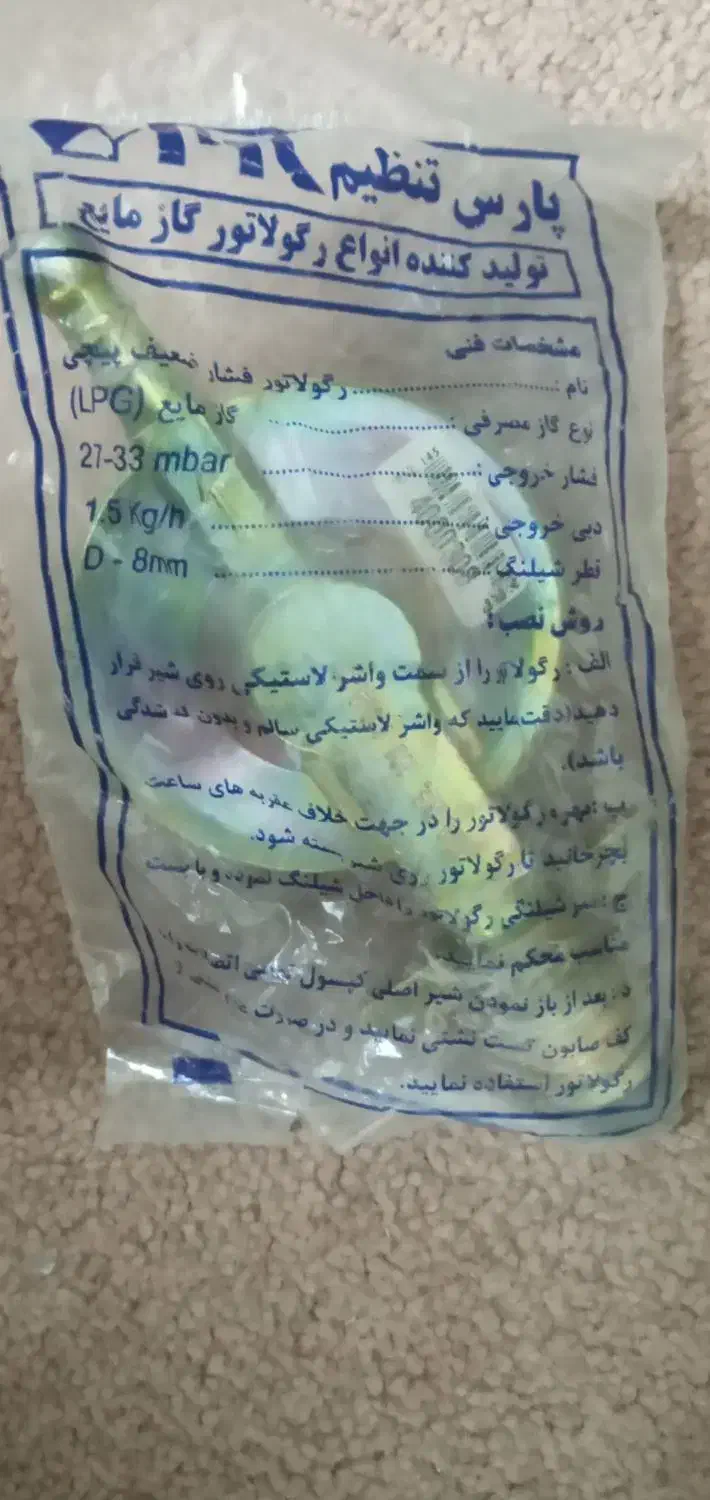 پارس تنظیم
تولید کننده انواع رگولاتور گاز مایع
مشخصات فنی
نام :..............................رگولاتور فشار ضعیف پیچی
نوع گاز مصرفی :.......................... گاز مایع (LPG)
فشار خروجی :.............................. 27-33 mbar
دبی خروجی :.................................. 1.5 Kg/h
قطر شیلنگ :.................................. D - 8mm
روش نصب :
الف : رگولاتور را از سمت واشر لاستیکی روی شیر قرار
دهید(دقت نمایید که واشر لاستیکی سالم و بدون له شدگی
باشد).
ب :مهره رگولاتور را در جهت خلاف عقربه های ساعت
بچرخانید تا رگولاتور روی شیر بسته شود.
ج :سر شیلنگی رگولاتور را داخل شیلنگ نموده و با بست
مناسب محکم نمایید.
د : بعد از باز نمودن شیر اصلی کپسول تمامی
کف صابون تست نشتی نمایید و در صورت
رگولاتور استفاده نمایید.